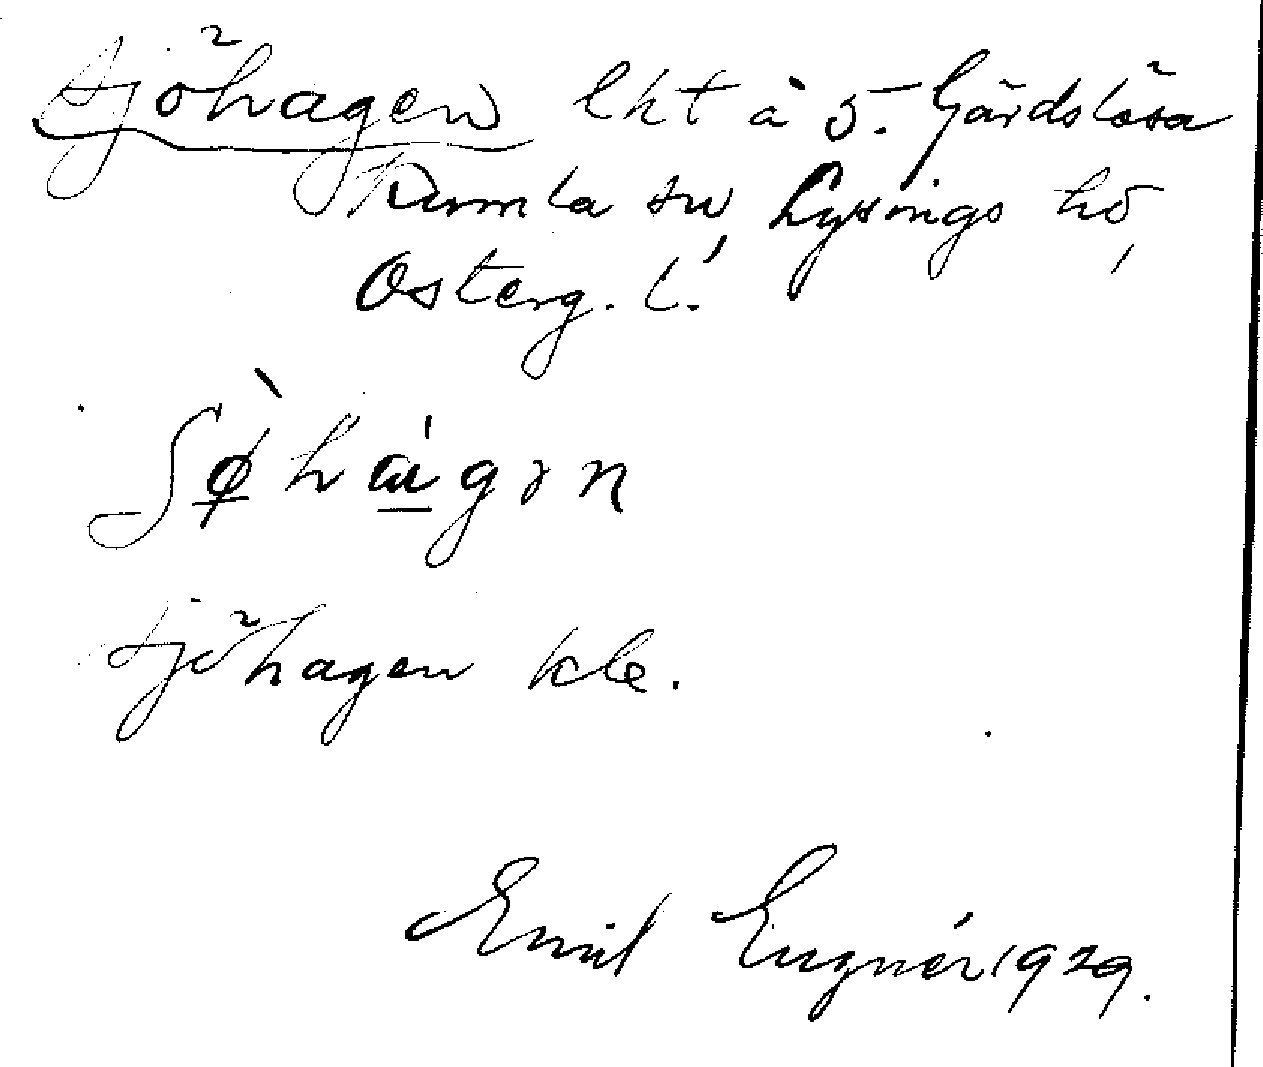 Sjöhagen lht å S. Gärdslösa
Kumla sn, Lysings hd,
Österg. l.
ʃø̀hágən
Sjöhagen kle.
Emil Lugnér 1929.